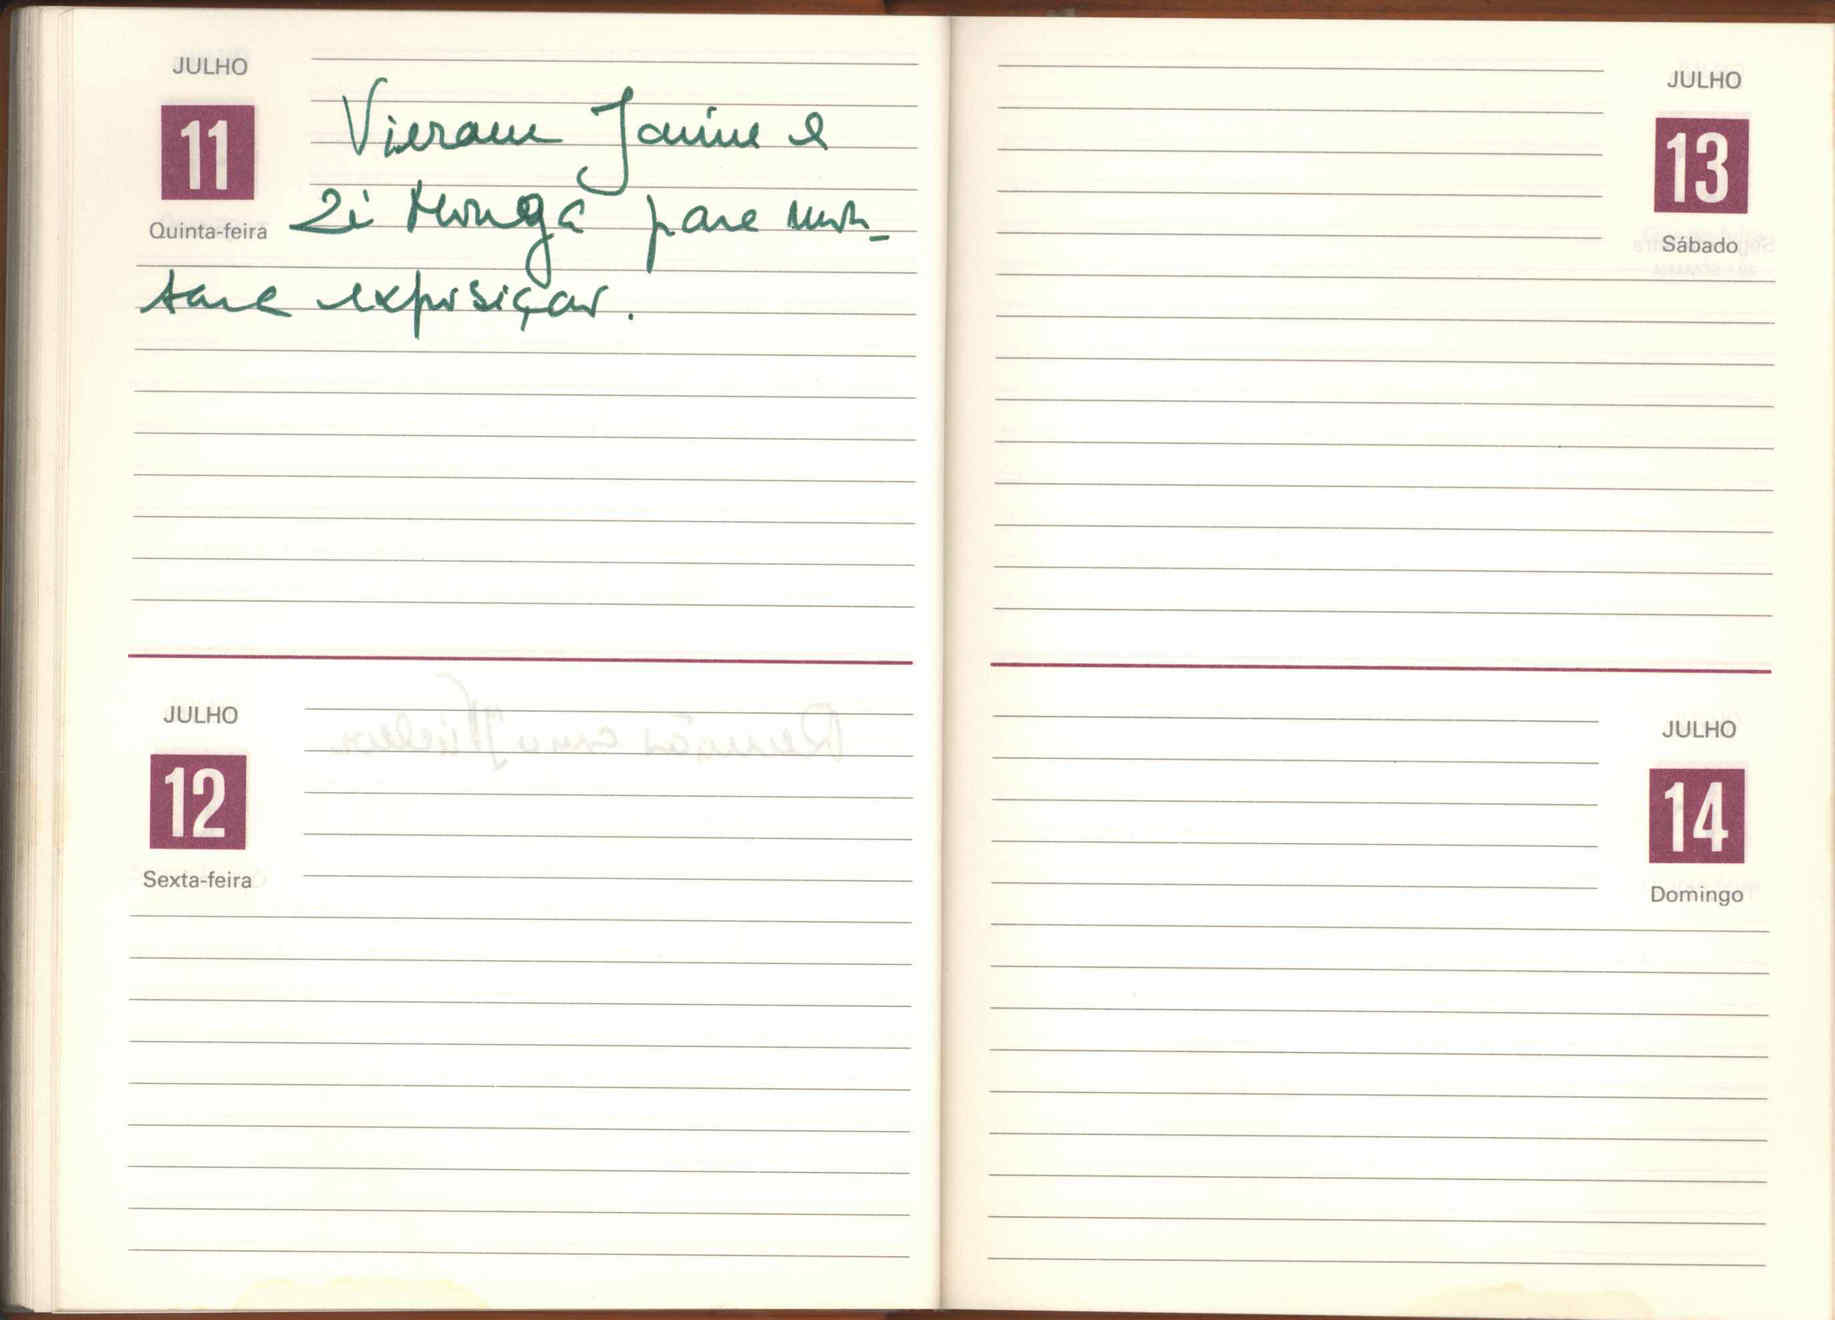 JULHO
11
Quinta-feira
Vieram Janine e
Zi Monga para mon-
tare exposição.
JULHO
12
Sexta-feira
JULHO
13
Sábado
JULHO
14
Domingo